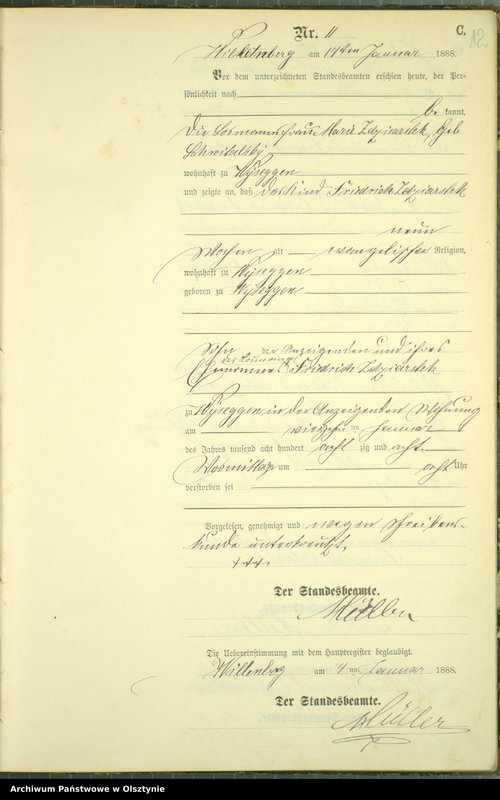 C.
12
Nr. 11
Willenberg am 14ten Januar 1888.
Vor dem unterzeichneten Standesbeamten erschien heute, der Per-
sönlichkeit nach
be kannt,
die Losmannsfrau Marie geb
wohnhaft zu Wyseggen
und zeigte an, daß das Kind Friedrich
neun
Wochen alt evangelischer Religion,
wohnhaft zu Wyseggen
geboren zu Wyseggen
Sohn der Anzeigenden und ihres
des Losmanns
Ehemannes Friedrich
zu Wyseggen in der Anzeigenden Wohnung
am vierzehnten Januar
des Jahres tausend acht hundert acht zig und acht
Vormittags um acht Uhr
verstorben sei
Vorgelesen, genehmigt und wegen Schreibens-
kunde unterkreuzt.
+++.
Der Standesbeamte.
Müller
Die Uebereinstimmung mit dem Hauptregister beglaubigt.
Willenberg am 14ten Januar 1888.
Der Standesbeamte.
Müller
Archiwum Państwowe w Olsztynie